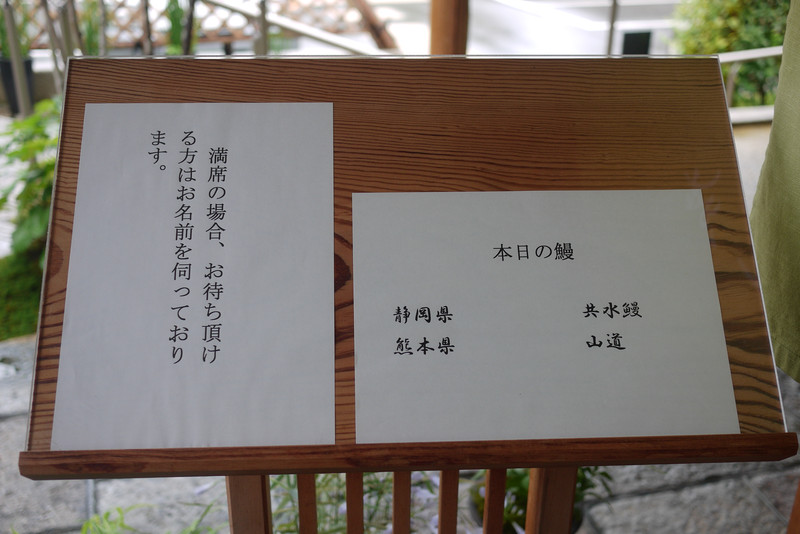 満席の場合、お待ち頂け
る方はお名前を伺っており
ます。
本日の鰻
静岡県 共水鰻
熊本県 山道